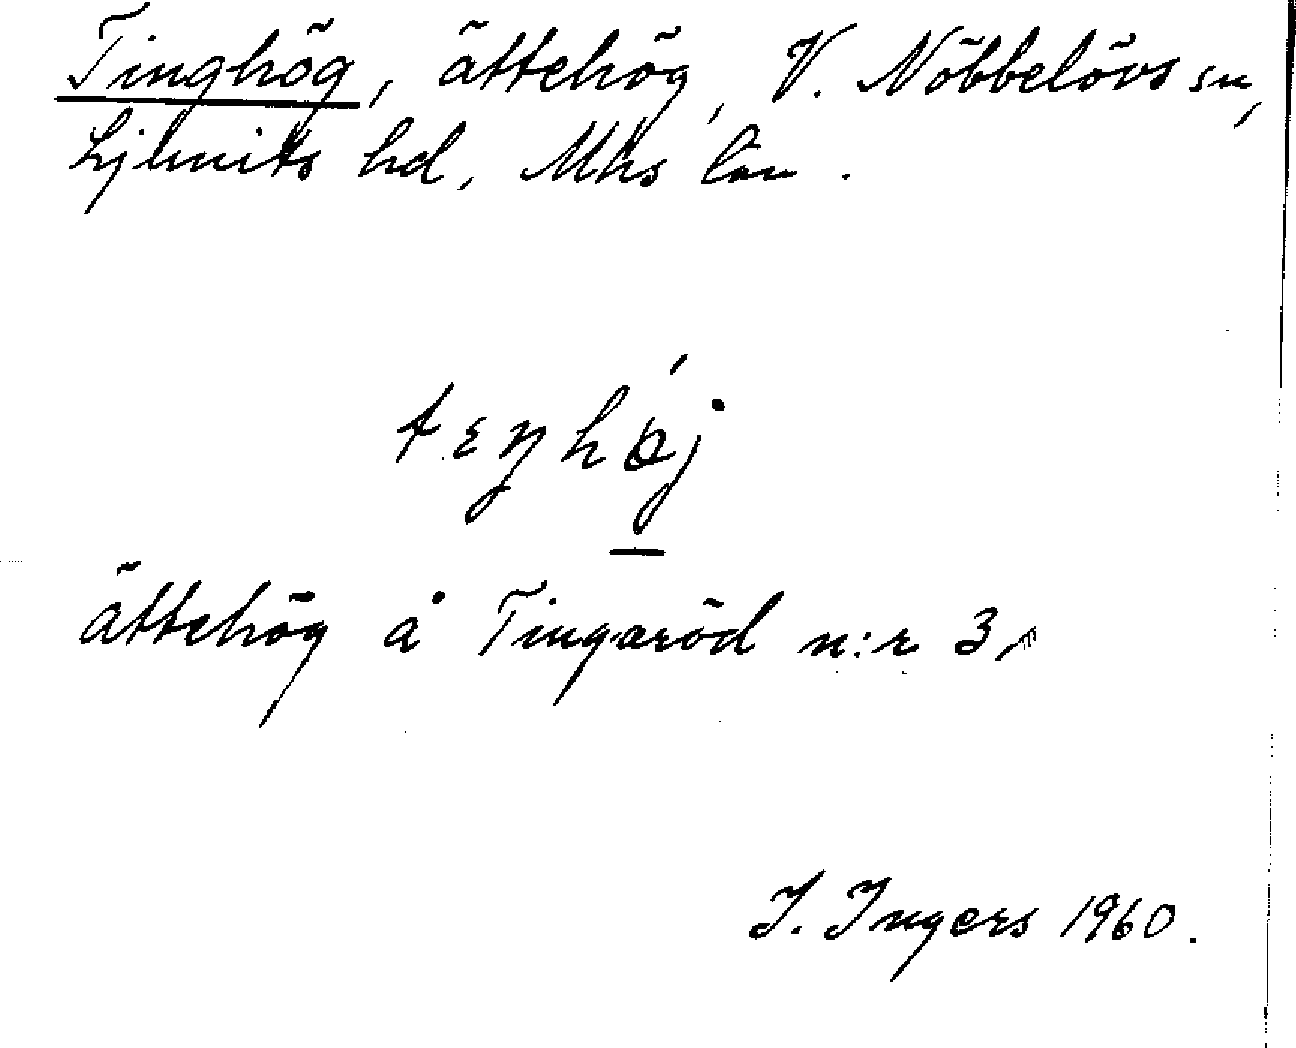 Tinghög, ättehög, V. Nöbbelövs sn,
Ljunits hd, Mhs län.
tɛŋhǿj
ättehög å Tingaröd n:r 3
I. Ingers 1960.